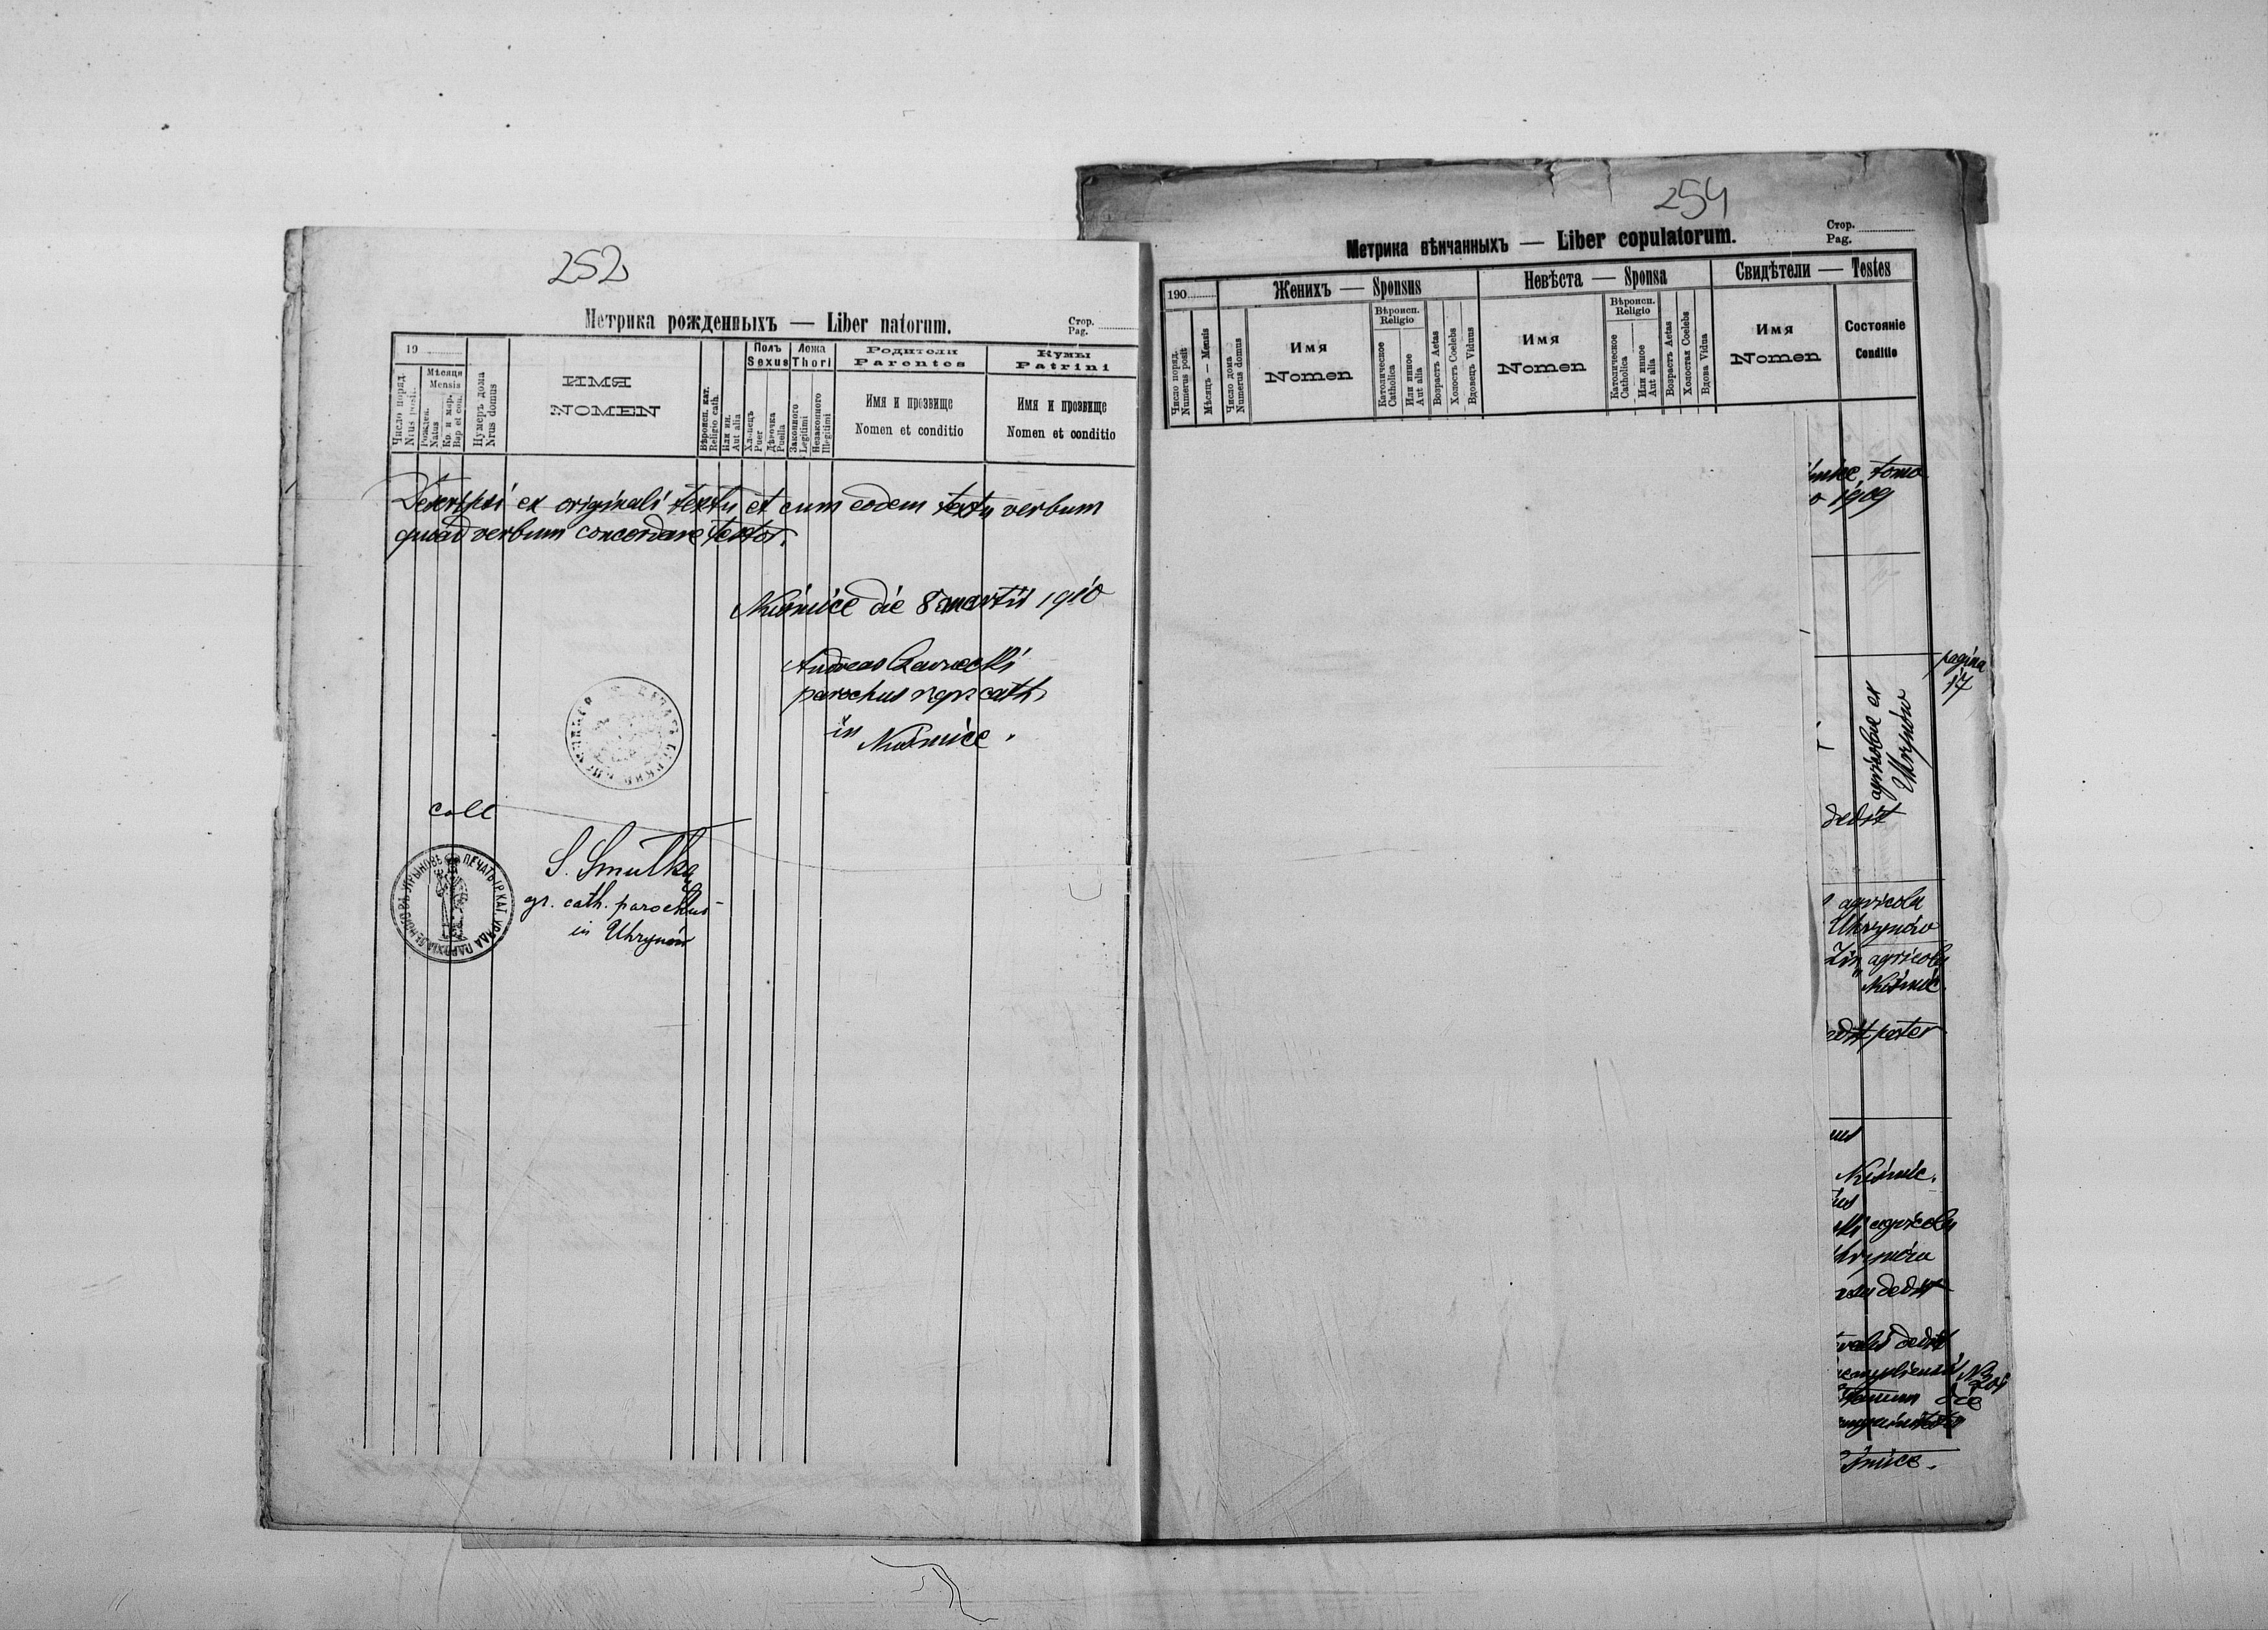 252
Метрика рожденныхъ — Liber natorum.
Стор.
Pag.
19
Число поряд.
Nrus posit.
Мѣсяця
Mensis
Рожден.
Natus
Кр. и мѵр.
Bap et con.
Нумеръ дома
Nrus domus
ИМЯ
NOMEN
Вѣроисп. кат.
Religio cath.
Или ин.
Aut alia
Полъ
Sexus
Хлопецъ
Puer
Дѣвочка
Puella
Ложа
Thori
Законного
Legitimi
Незаконного
Illegitimi
Родители
Parentes
Имя и прозвище
Nomen et conditio
Кумы
Patrini
Имя и прозвище
Nomen et conditio
Descripsi ex originali textu et cum eodem textu verbum
quoad verbum concordare testor.
die 8 martii 1910
Andreas
parochus cath.
in
coll
S. Smulka
gr. cath. parochus
in Uhrynów
254
Метрика вѣнчанныхъ — Liber copulatorum.
Стор.
Pag.
190
Число поряд.
Numerus posit
Мѣсяцъ — Mensis
Число дома
Numerus domus
Женихъ — Sponsus
Имя
Nomen
Вѣроисп.
Religio
Католическое
Catholica
Или инное
Aut alia
Возрастъ Aetas
Холостъ Coelebs
Вдовецъ Viduus
Невѣста — Sponsa
Имя
Nomen
Вѣроисп.
Religio
Католическое
Catholica
Или инное
Aut alia
Возрастъ Aetas
Холостая Coelebs
Вдова Vidua
Свидѣтели — Testes
Имя
Nomen
Состояніе
Conditio
tomo
1909
pagina
17
agricolae ex
Uhrynów
dedit
agricola
Uhrynów
agricola
pater
agricola
dedit
dedit